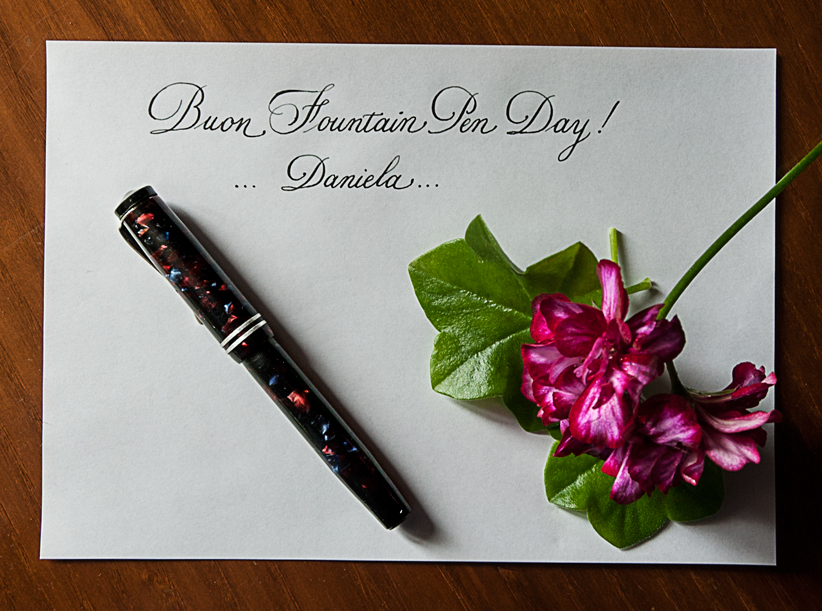 Buon Fountain Pen Day!
... Daniela...